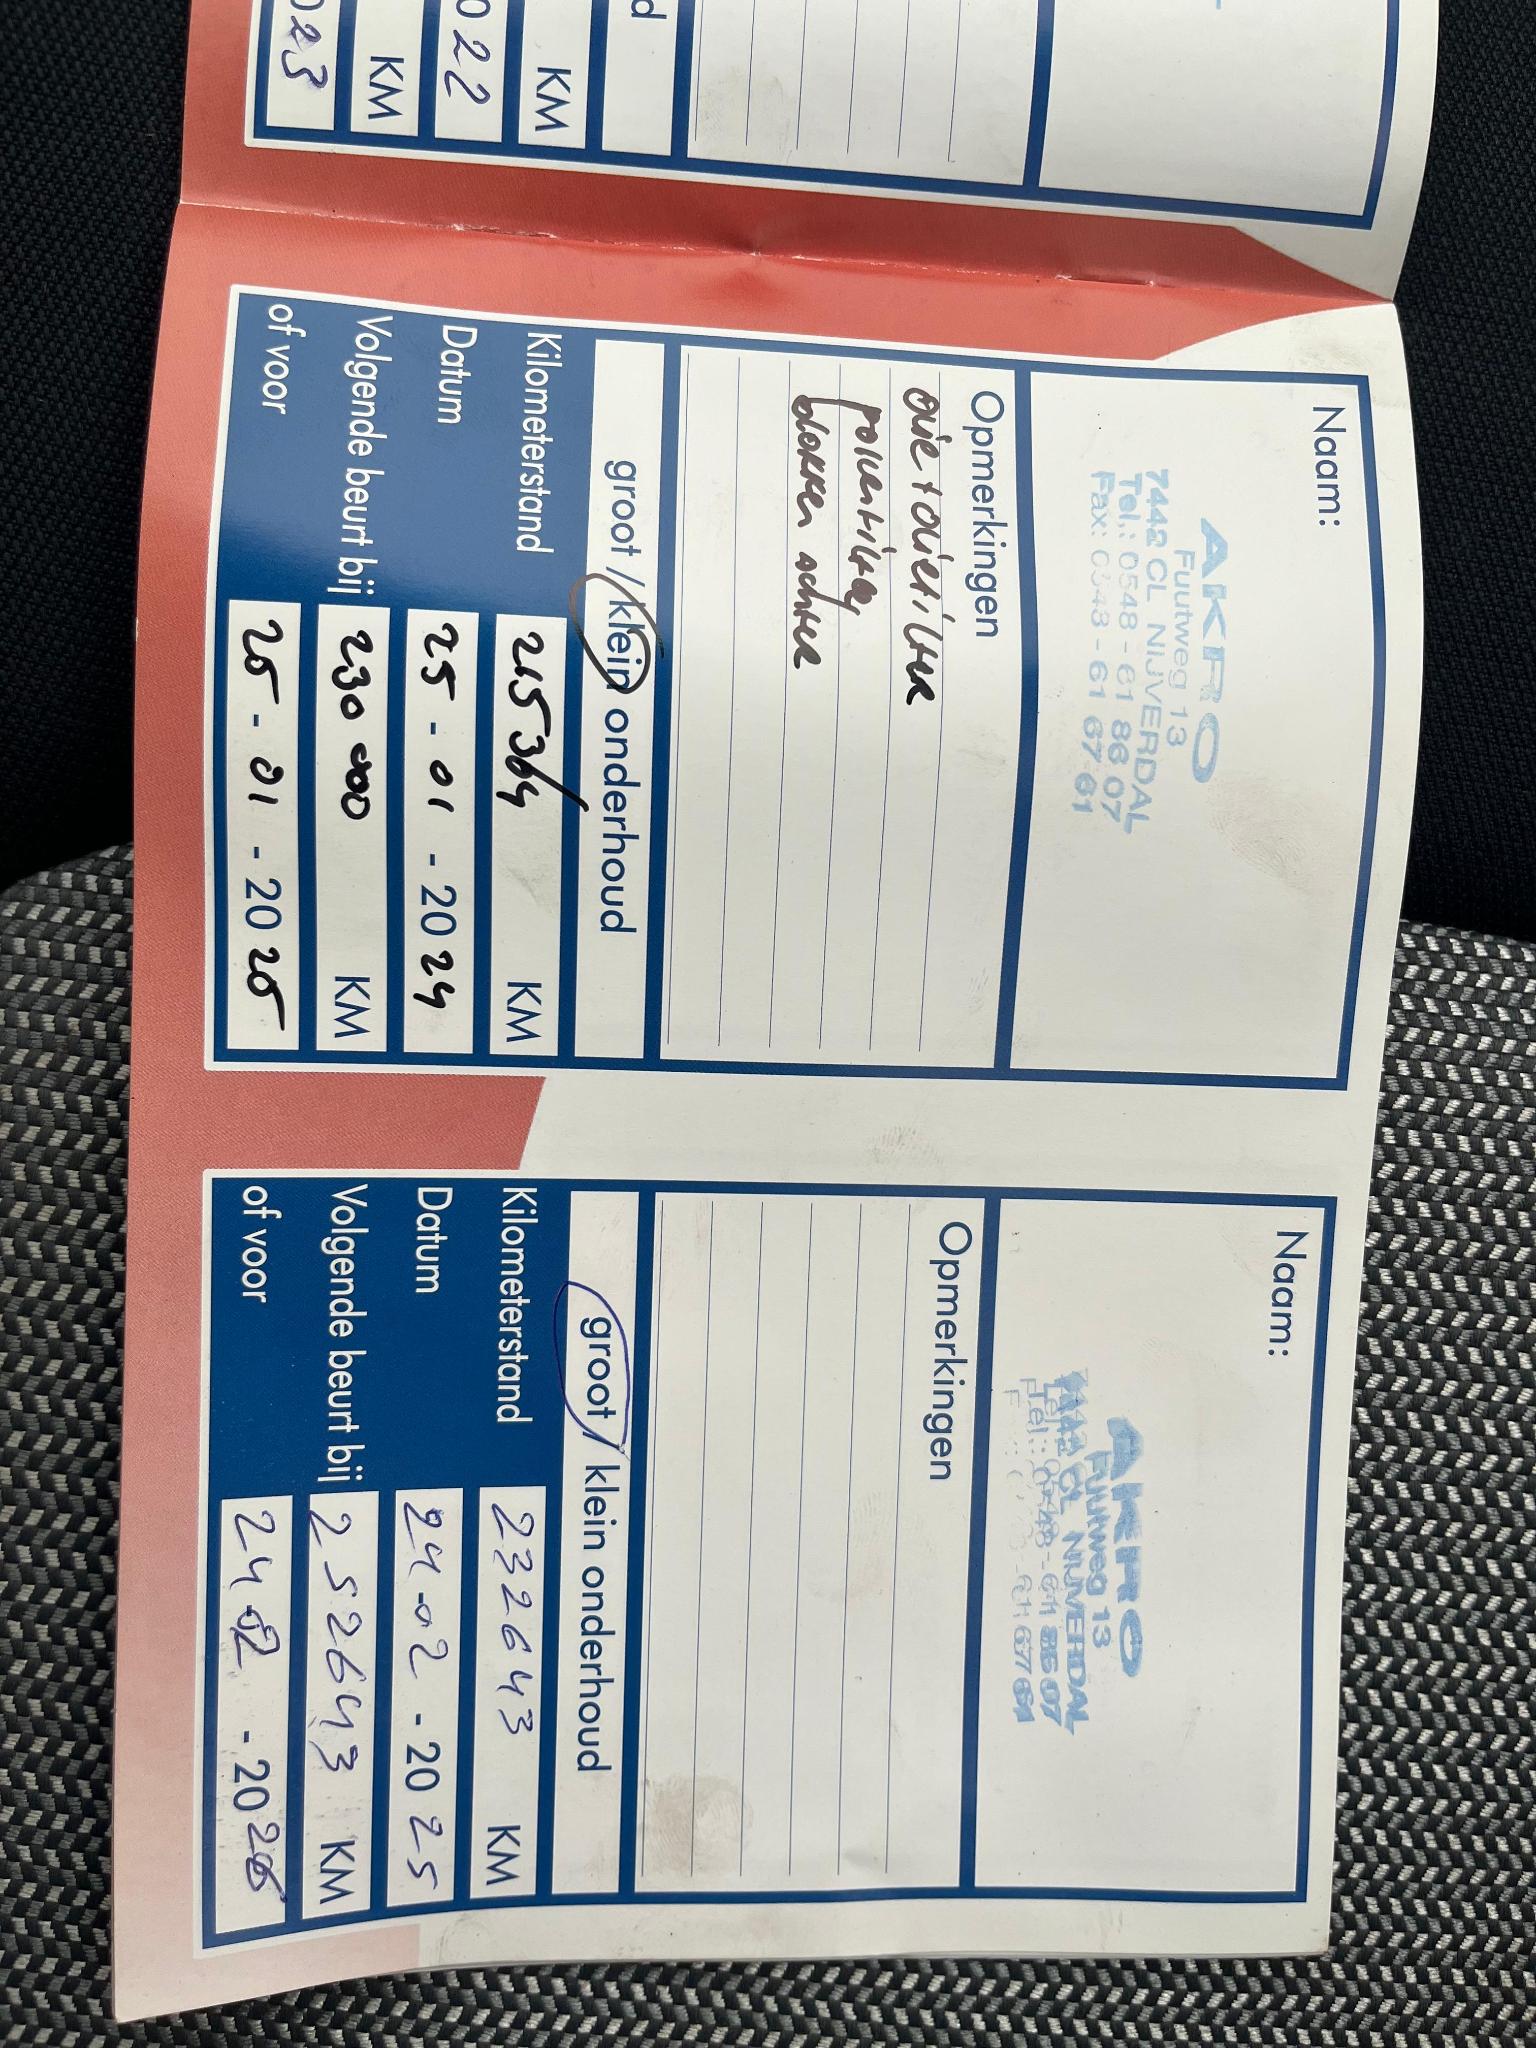 d
KM
022
KM
023
Naam:
AKRO
Fuutweg 13
7442 CL NIJVERDAL
Tel.: 0548 - 61 86 07
Fax: 0548 - 61 67 61
Opmerkingen
olie + oliefilter
pollenfilter
blokken achter
groot / klein onderhoud
Kilometerstand 215364 KM
Datum 25 - 01 - 2024
Volgende beurt bij 230 000 KM
of voor 25 - 01 - 2025
Naam:
AKRO
Fuutweg 13
7442 CL NIJVERDAL
Tel.: 0548 - 61 86 07
61 67 61
Opmerkingen
groot / klein onderhoud
Kilometerstand 232643 KM
Datum 24-02 - 2025
Volgende beurt bij 252643 KM
of voor 24-02 - 2026